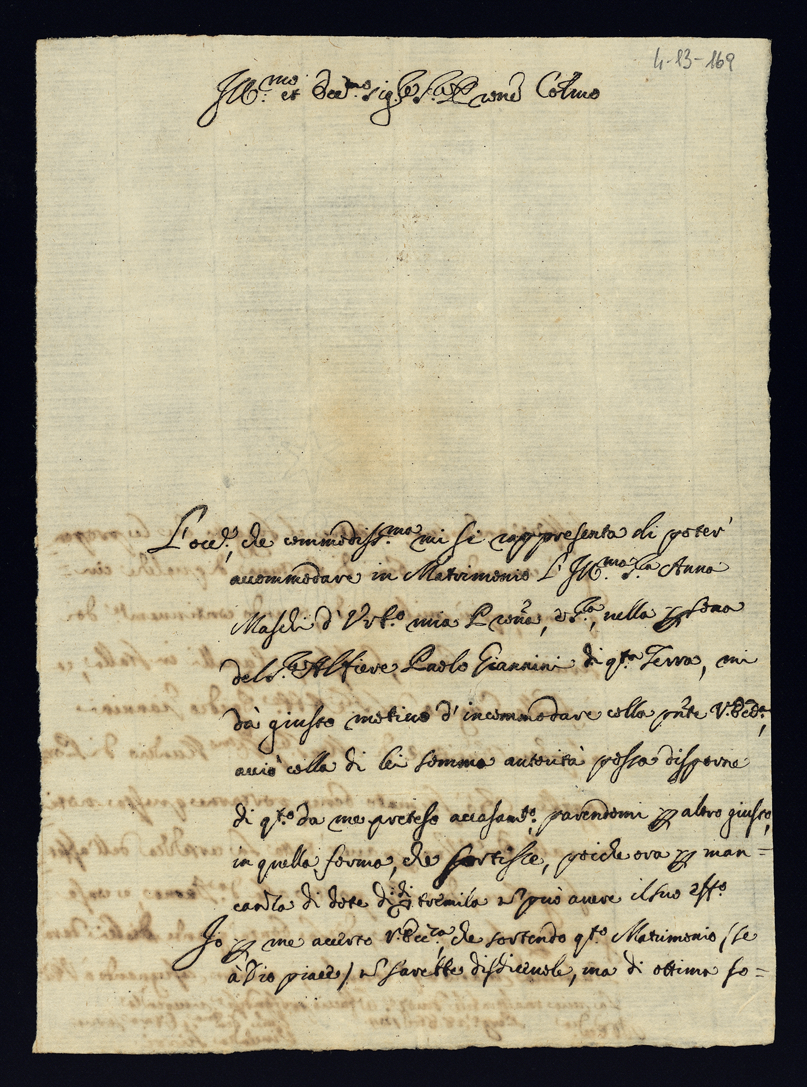 4-13-169
Ill.mo et Ecc.mo Sig.re S.r e P.rone Col.mo
L'occ.e, che commodiss.ma mi si rappresenta di poter'
accommodare in Matrimonio L'Ill.ma S.ra Anna
Maschi d'Urb.o mia P.rona, e S.ra, nella p̱sona
del S.r Alfiere Paolo Giannini di q.ta Terra, mi
dà giusto motivo d'incommodare colla p̃nte V. Ecc.a,
acciò colla di lei somma autorità possa disporre
di q.to da me preteso accasam.to, parendomi p̱ altro giusto,
in quella forma, che sortisce, poiche ora p̱ man=
canza di dote di tremila n̄ può avere il suo eff.o
Io p̱ me accerto V. Ecc.za, che sortendo q.to Matrimonio (se
à Dio piace) n̄ sarebbe disdicevole, ma di ottima so=